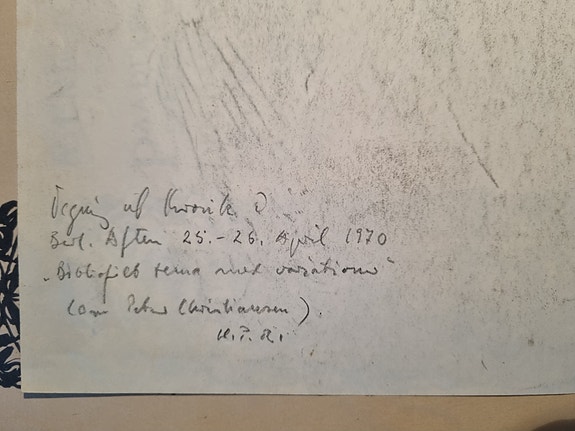 Tegning til Kronik i
Berl. Aften 25.-26. April 1970
"Bibliofilt tema med variationer"
(om Peter Christiansen).
H.P.R.